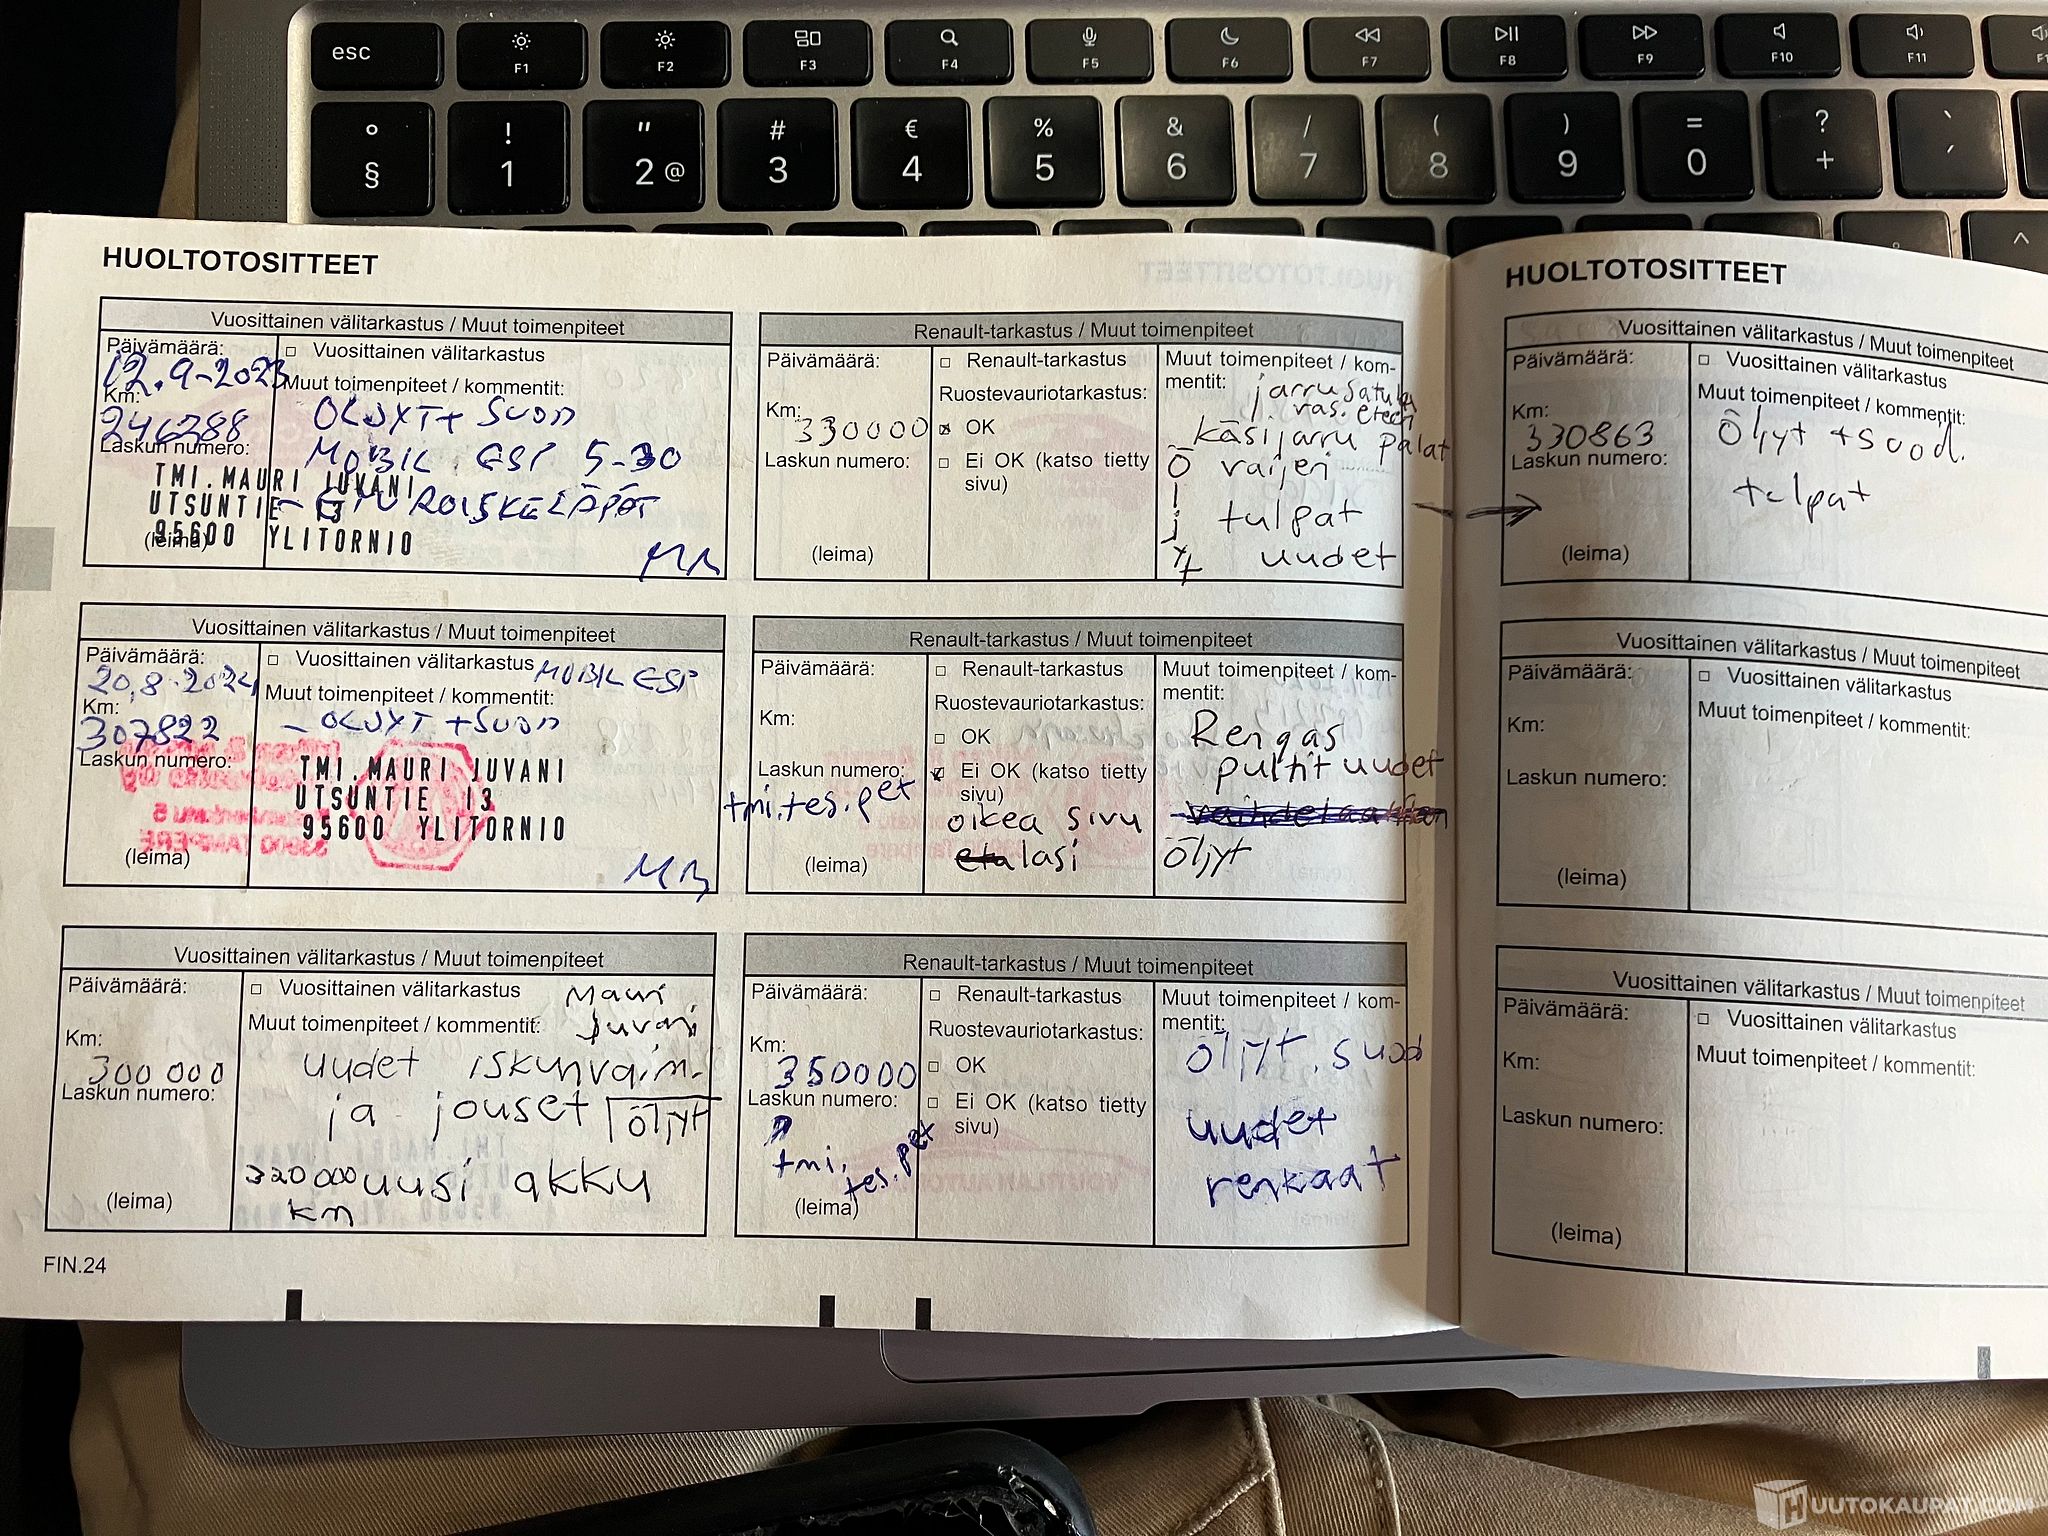 esc
F1
F2
F3
F4
F5
F6
F7
F8
F9
F10
F11
° §
! 1
" 2 @
# 3
€ 4
% 5
& 6
/ 7
( 8
) 9
= 0
? +
HUOLTOTOSITTEET
Vuosittainen välitarkastus / Muut toimenpiteet
Päivämäärä:
12.9-2023
□ Vuosittainen välitarkastus
Muut toimenpiteet / kommentit:
Km:
246288
Laskun numero:
ÖLJYT+ SUOD
MOBIL ESP 5-30
ROISKELÄPÄT
TMI.MAURI JUVANI
UTSUNTIE 13
95600 YLITORNIO
(leima)
Renault-tarkastus / Muut toimenpiteet
Päivämäärä:
□ Renault-tarkastus
Ruostevauriotarkastus:
Km:
330000
OK
Laskun numero:
□ Ei OK (katso tietty
sivu)
(leima)
Muut toimenpiteet / kom-
mentit:
jarrusatula
käsijarru palat
vaijeri
tulpat
uudet
Öljyt
Vuosittainen välitarkastus / Muut toimenpiteet
Päivämäärä:
20.8-2024
□ Vuosittainen välitarkastus
MOBIL ESP
Muut toimenpiteet / kommentit:
Km:
307822
- ÖLJYT +SUOD
Laskun numero:
TMI.MAURI JUVANI
UTSUNTIE 13
95600 YLITORNIO
(leima)
Renault-tarkastus / Muut toimenpiteet
Päivämäärä:
□ Renault-tarkastus
Ruostevauriotarkastus:
Km:
□ OK
Laskun numero:
tmi.tes.pet
Ei OK (katso tietty
sivu)
oikea sivu
lasi
(leima)
Muut toimenpiteet / kom-
mentit:
Rengas
pultit uudet
öljyt
Vuosittainen välitarkastus / Muut toimenpiteet
Päivämäärä:
□ Vuosittainen välitarkastus
Mauri
Juvani
Muut toimenpiteet / kommentit:
Km:
300 000
Laskun numero:
uudet iskunvaim.
ja jouset öljyt
320000 uusi akku
km
(leima)
Renault-tarkastus / Muut toimenpiteet
Päivämäärä:
□ Renault-tarkastus
Ruostevauriotarkastus:
Km:
350000
□ OK
Laskun numero:
□ Ei OK (katso tietty
sivu)
tmi.
tes.pet
(leima)
Muut toimenpiteet / kom-
mentit:
öljyt, suod
uudet
renkaat
FIN.24
HUOLTOTOSITTEET
Vuosittainen välitarkastus / Muut toimenpiteet
Päivämäärä:
□ Vuosittainen välitarkastus
Muut toimenpiteet / kommentit:
Km:
330863
Laskun numero:
Öljyt +suod.
tulpat
(leima)
Vuosittainen välitarkastus / Muut toimenpiteet
Päivämäärä:
□ Vuosittainen välitarkastus
Muut toimenpiteet / kommentit:
Km:
Laskun numero:
(leima)
Vuosittainen välitarkastus / Muut toimenpiteet
Päivämäärä:
□ Vuosittainen välitarkastus
Muut toimenpiteet / kommentit:
Km:
Laskun numero:
(leima)
HUUTOKAUPAT.COM